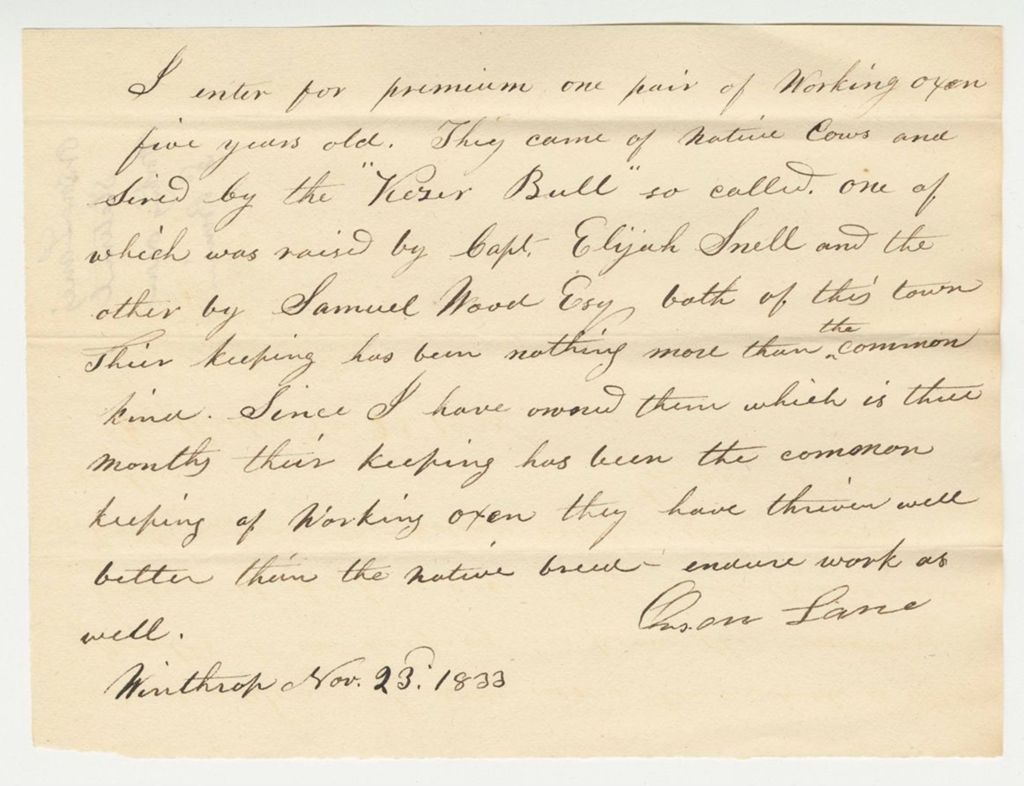 I enter for premium one pair of Working oxen
five years old. They came of native Cows and
Sired by the "Kezer Bull" so called. one of
which was raised by Capt. Elijah Snell and the
other by Samuel Wood Esq both of this town
Thier keeping has been nothing more than the common
kind. Since I have owned them which is three
months theír keeping has been the common
keeping of Working oxen they have thriven well
better than the native breed - endure work as
well.
Lane
Winthrop Nov. 23d. 1833